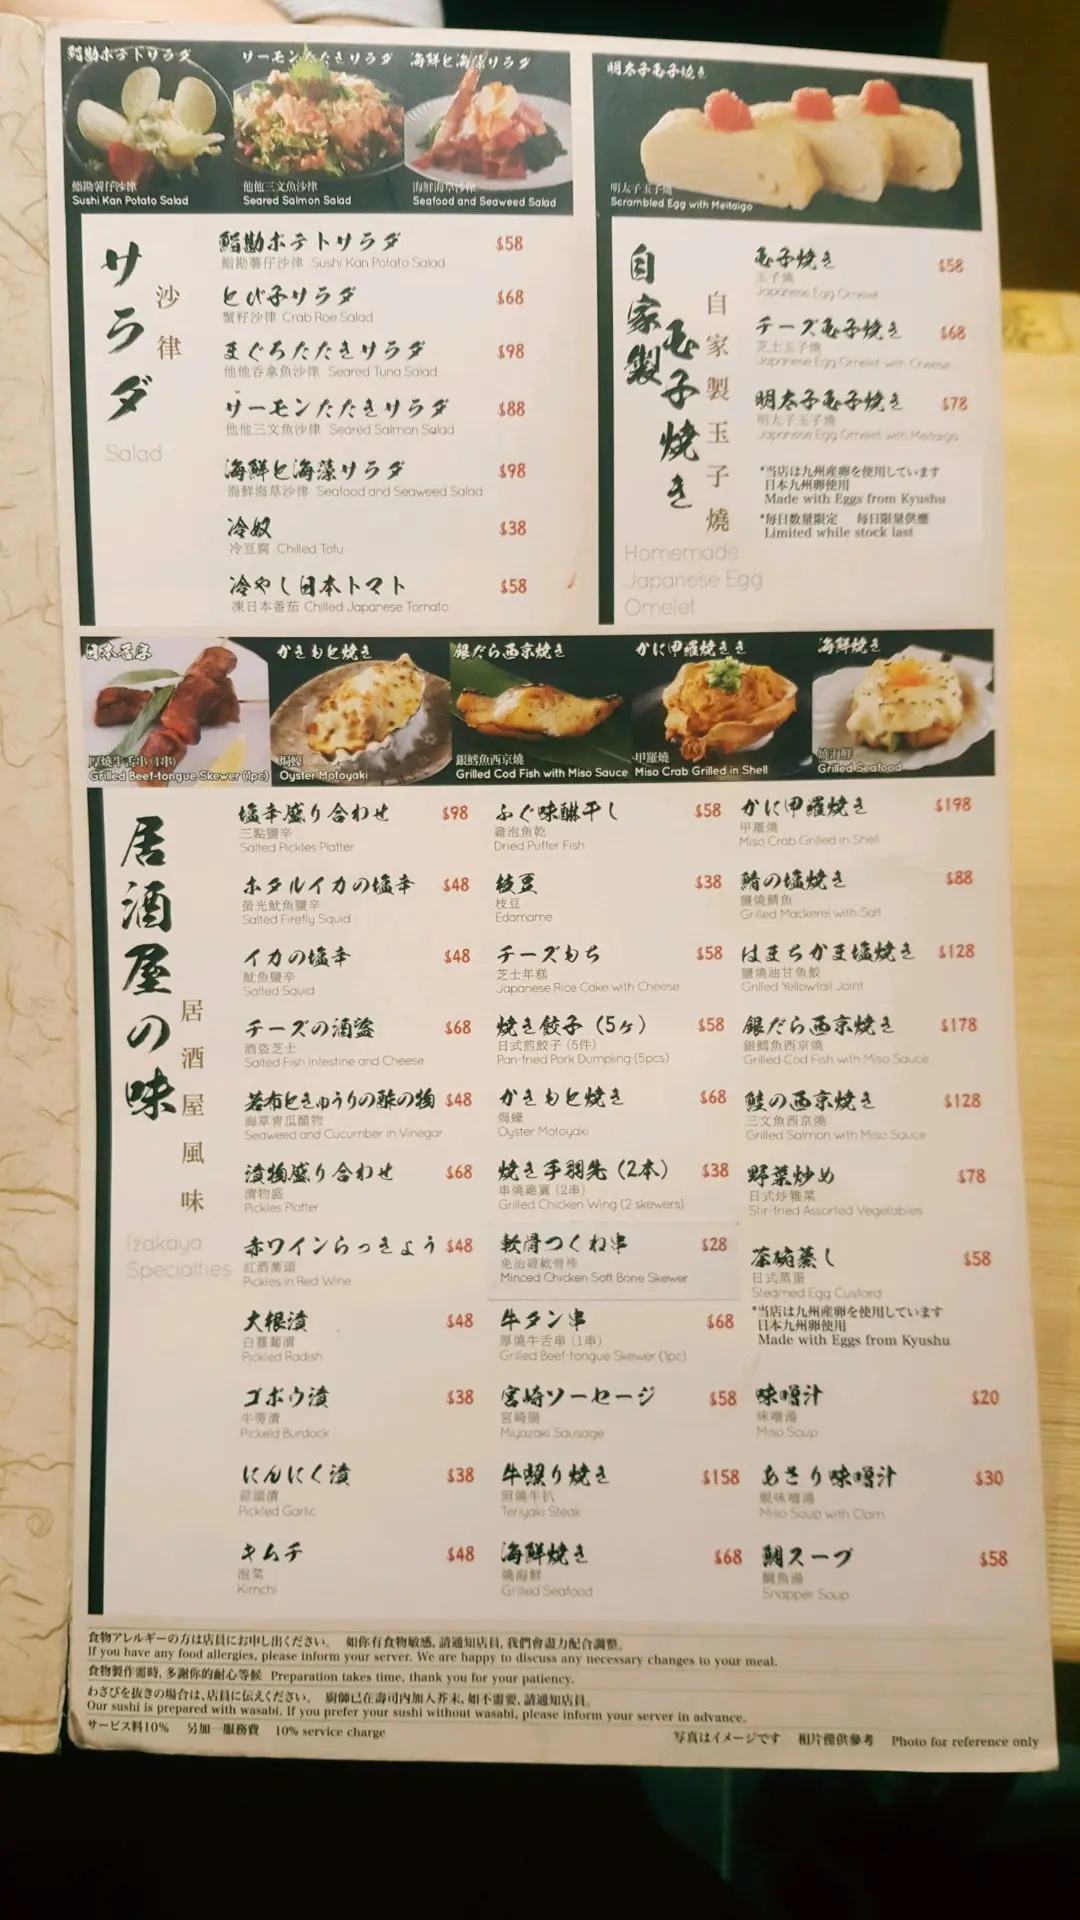 鮨勘ポテトサラダ
鮨勘薯仔沙律
Sushi Kan Potato Salad
サーモンたたきサラダ
他他三文魚沙律
Seared Salmon Salad
海鮮と海藻サラダ
海鮮海草沙律
Seafood and Seaweed Salad
明太子玉子焼き
明太子玉子燒
Scrambled Egg with Meitaigo
サラダ
沙律
Salad
鮨勘ポテトサラダ $58
鮨勘薯仔沙律 Sushi Kan Potato Salad
とび子サラダ $68
蟹籽沙律 Crab Roe Salad
まぐろたたきサラダ $98
他他吞拿魚沙律 Seared Tuna Salad
サーモンたたきサラダ $88
他他三文魚沙律 Seared Salmon Salad
海鮮と海藻サラダ $98
海鮮海草沙律 Seafood and Seaweed Salad
冷奴 $38
冷豆腐 Chilled Tofu
冷やし日本トマト $58
凍日本番茄 Chilled Japanese Tomato
自家製玉子焼き
自家製玉子燒
Homemade
Japanese Egg
Omelet
玉子焼き $58
玉子燒
Japanese Egg Omelet
チーズ玉子焼き $68
芝士玉子燒
Japanese Egg Omelet with Cheese
明太子玉子焼き $78
明太子玉子燒
Japanese Egg Omelet with Meitaigo
*当店は九州産卵を使用しています
日本九州卵使用
Made with Eggs from Kyushu
*毎日数量限定 每日限量供應
Limited while stock last
厚燒牛舌串 (1串)
Grilled Beef-tongue Skewer (1pc)
かきもと焼き
焗蠔
Oyster Motoyaki
銀だら西京焼き
銀鱈魚西京燒
Grilled Cod Fish with Miso Sauce
かに甲羅焼き
甲羅燒
Miso Crab Grilled in Shell
海鮮焼き
燒海鮮
Grilled Seafood
居酒屋の味
居酒屋風味
Izakaya
Specialties
塩辛盛り合わせ $98
三點鹽辛
Salted Pickles Platter
ホタルイカの塩辛 $48
螢光魷魚鹽辛
Salted Firefly Squid
イカの塩辛 $48
魷魚鹽辛
Salted Squid
チーズの酒盗 $68
酒盜芝士
Salted Fish Intestine and Cheese
若布ときゅうりの酢の物 $48
海草青瓜醋物
Seaweed and Cucumber in Vinegar
漬物盛り合わせ $68
漬物盛
Pickles Platter
赤ワインらっきょう $48
紅酒蕎頭
Pickles in Red Wine
大根漬 $48
白蘿蔔漬
Pickled Radish
ゴボウ漬 $38
牛蒡漬
Pickeld Burdock
にんにく漬 $38
蒜頭漬
Pickled Garlic
キムチ $48
泡菜
Kimchi
ふぐ味醂干し $58
雞泡魚乾
Dried Puffer Fish
枝豆 $38
枝豆
Edamame
チーズもち $58
芝士年糕
Japanese Rice Cake with Cheese
焼き餃子（5ヶ） $58
日式煎餃子 (5件)
Pan-fried Pork Dumpling (5pcs)
かきもと焼き $68
焗蠔
Oyster Motoyaki
焼き手羽先（2本） $38
串燒雞翼 (2串)
Grilled Chicken Wing (2 skewers)
軟骨つくね串 $28
免治雞軟骨棒
Minced Chicken Soft Bone Skewer
牛タン串 $68
厚燒牛舌串 (1串)
Grilled Beef-tongue Skewer (1pc)
宮崎ソーセージ $58
宮崎腸
Miyazaki Sausage
牛照り焼き $158
照燒牛扒
Teriyaki Steak
海鮮焼き $68
燒海鮮
Grilled Seafood
かに甲羅焼き $198
甲羅燒
Miso Crab Grilled in Shell
鯖の塩焼き $88
鹽燒鯖魚
Grilled Mackerel with Salt
はまちかま塩焼き $128
鹽燒油甘魚鮫
Grilled Yellowtail Joint
銀だら西京焼き $178
銀鱈魚西京燒
Grilled Cod Fish with Miso Sauce
鮭の西京焼き $128
三文魚西京燒
Grilled Salmon with Miso Sauce
野菜炒め $78
日式炒雜菜
Stir-fried Assorted Vegetables
茶碗蒸し $58
日式蒸蛋
Steamed Egg Custard
*当店は九州産卵を使用しています
日本九州卵使用
Made with Eggs from Kyushu
味噌汁 $20
味噌湯
Miso Soup
あさり味噌汁 $30
蜆味噌湯
Miso Soup with Clam
鯛スープ $58
鯛魚湯
Snapper Soup
食物アレルギーの方は店員にお申し出ください。 如你有食物敏感, 請通知店員, 我們會盡力配合調整。
If you have any food allergies, please inform your server. We are happy to discuss any necessary changes to your meal.
食物製作需時, 多謝你的耐心等候 Preparation takes time, thank you for your patiency.
わさびを抜きの場合は、店員に伝えください。 廚師已在壽司內加入芥末, 如不需要, 請通知店員。
Our sushi is prepared with wasabi. If you prefer your sushi without wasabi, please inform your server in advance.
サービス料10% 另加一服務費 10% service charge
写真はイメージです 相片僅供參考 Photo for reference only